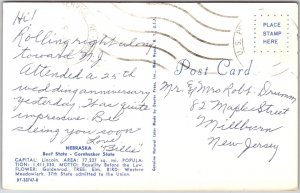 Hi!
Rolling right along
toward N.J.
Attended a 25th
wedding anniversary
yesterday. It was quite
impressive. Be
seeing you soon
Love,
"Belle"
NEBRASKA
Beef State - Cornhusker State
CAPITAL: Lincoln. AREA: 77,237 sq. mi. POPULA-
TION: 1,411,330. MOTTO: Equality Before the Law.
FLOWER: Goldenrod. TREE: Elm. BIRD: Western
Meadowlark. 37th State admitted to the Union.
DT-33747-B
Post Card
PLACE
STAMP
HERE
Mr & Mrs Robt.
82 Maple Street
Millburn
New Jersey